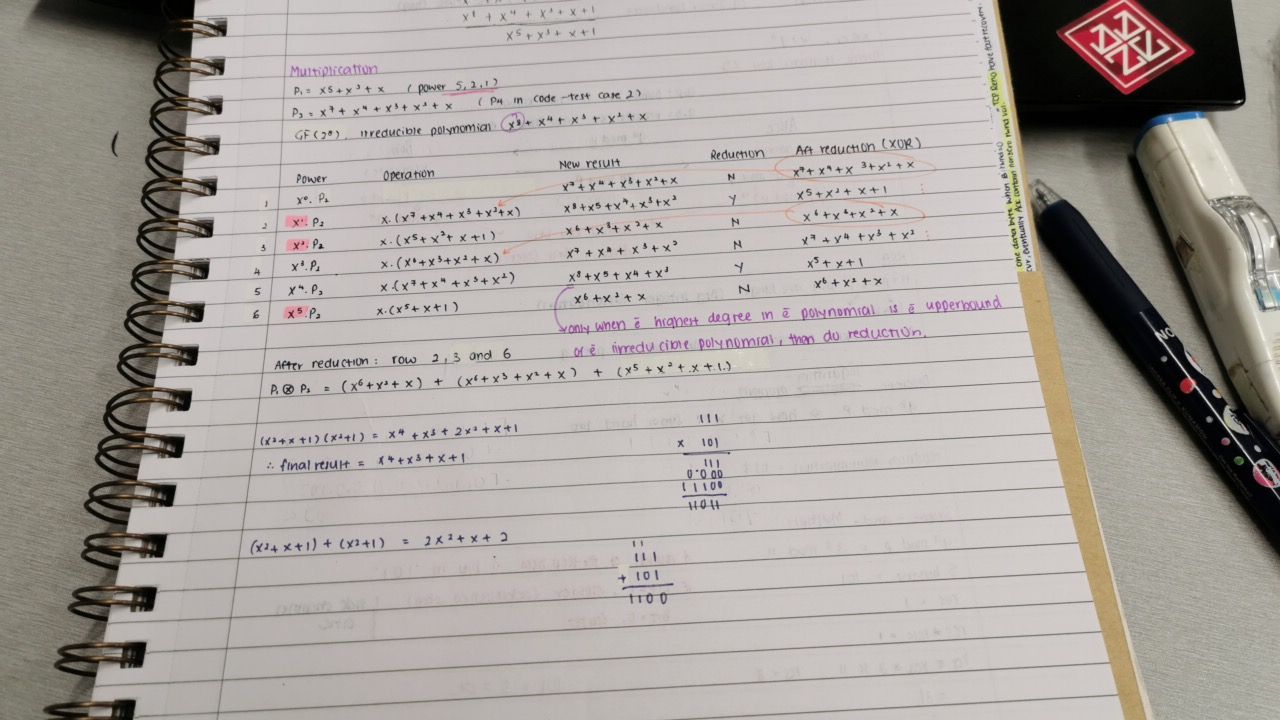 x⁸ + x⁴ + x³ + x + 1
x⁵ + x³ + x + 1
Multiplication
P₁ = x⁵ + x² + x (power 5, 2, 1)
P₂ = x⁷ + x⁴ + x³ + x² + x (P4 in code - test case 2)
GF(2⁸), irreducible polynomial x⁸ + x⁴ + x³ + x² + x
Power Operation New result Reduction Aft reduction (XOR)
1 x⁰. P₂ x⁷ + x⁴ + x³ + x² + x N x⁷ + x⁴ + x³ + x² + x
2 x¹. P₂ x.(x⁷ + x⁴ + x³ + x² + x) x⁸ + x⁵ + x⁴ + x³ + x² Y x⁵ + x² + x + 1
3 x². P₂ x.(x⁵ + x² + x + 1) x⁶ + x³ + x² + x N x⁶ + x³ + x² + x
4 x³. P₂ x.(x⁶ + x³ + x² + x) x⁷ + x⁴ + x³ + x² N x⁷ + x⁴ + x³ + x²
5 x⁴. P₂ x.(x⁷ + x⁴ + x³ + x²) x⁸ + x⁵ + x⁴ + x³ Y x⁵ + x + 1
6 x⁵. P₂ x.(x⁵ + x + 1) x⁶ + x² + x N x⁶ + x² + x
only when ē highest degree in ē polynomial is ē upperbound
of ē irreducible polynomial, then do reduction.
After reduction : row 2, 3 and 6
P₁ ⊗ P₂ = (x⁶ + x² + x) + (x⁶ + x³ + x² + x) + (x⁵ + x² + x + 1)
(x² + x + 1)(x² + 1) = x⁴ + x³ + 2x² + x + 1
∴ final result = x⁴ + x³ + x + 1
111
x 101
111
0000
11100
11011
(x² + x + 1) + (x² + 1) = 2x² + x + 2
11
111
+ 101
1100
NO